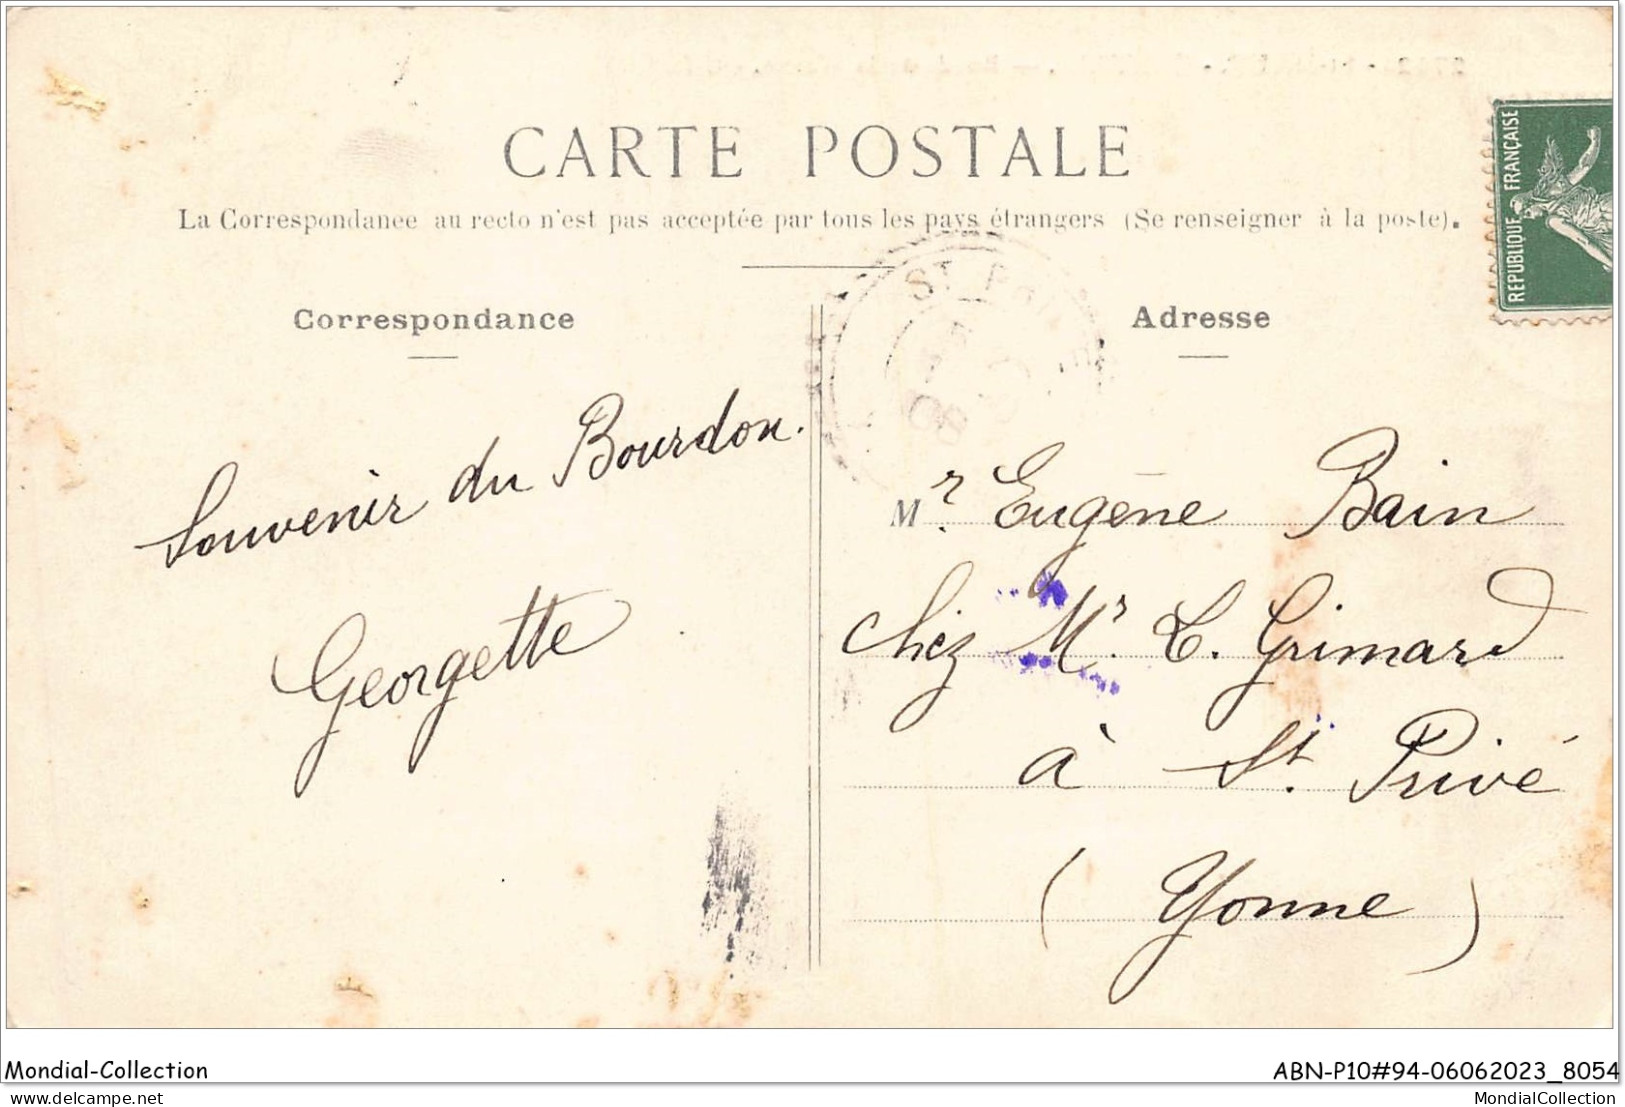 CARTE POSTALE
La Correspondance au recto n'est pas acceptée par tous les pays étrangers (Se renseigner à la poste).
REPUBLIQUE FRANÇAISE
ST
08
Correspondance
Souvenir du Bourdon.
Georgette
Adresse
Mr. Eugène Bain
chez Mr. C. Grimard
à St. Privé
(Yonne)
Mondial-Collection
ABN-P10#94-06062023_8054
delcampe.net
MondialCollection